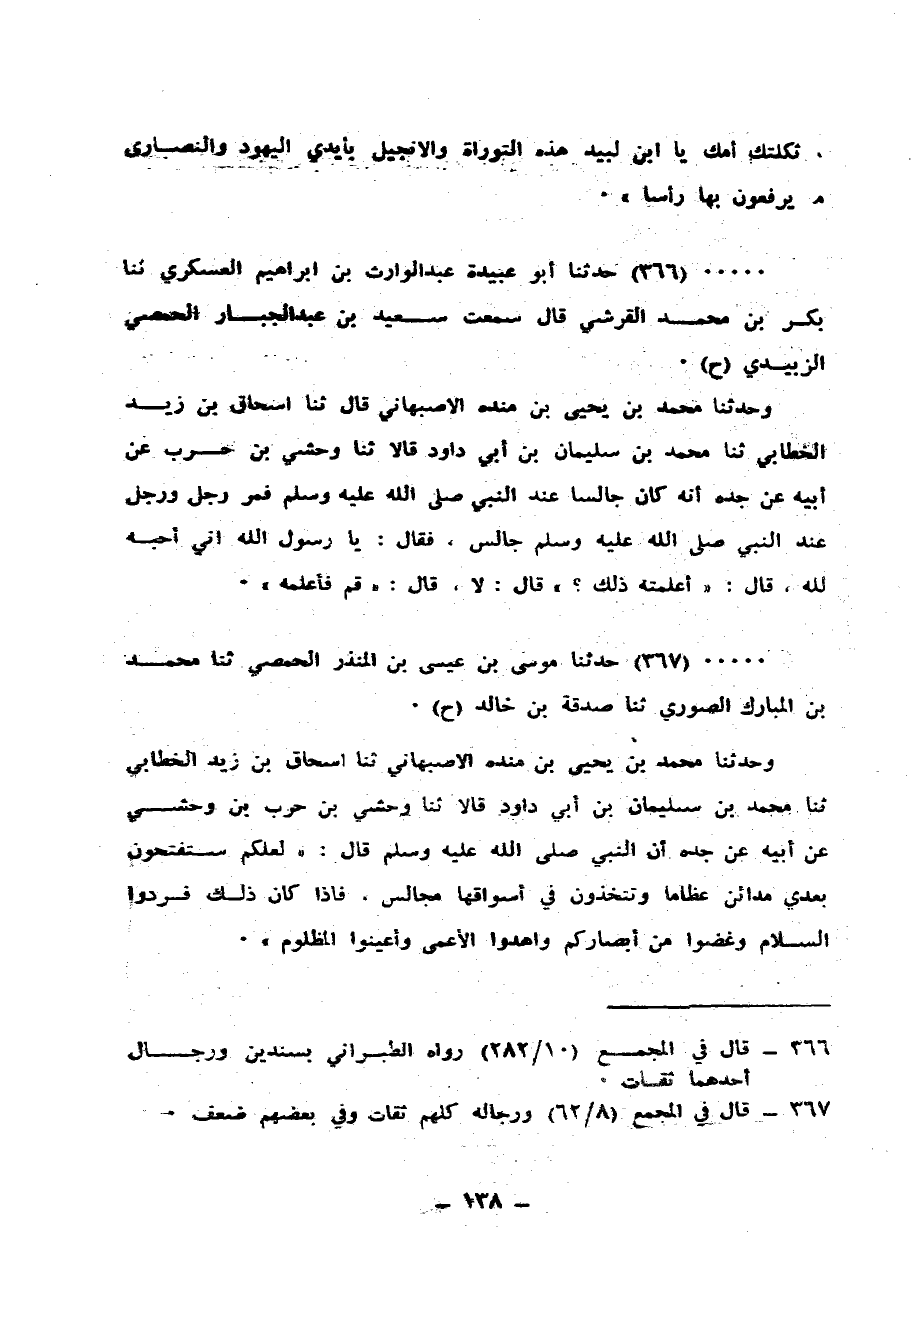 ، ثكلتك أمك يا ابن لبيد هذه التوراة والانجيل بأيدي اليهود والنصارى
يرفعون بها رأسا » ٠
٠٠٠٠٠ (٣٦٦) حدثنا أبو عبيدة عبدالوارث بن ابراهيم العسكري ثنا
بكر بن محمد القرشي قال سمعت سعيد بن عبدالجبار الحمصي
الزبيدي (ح) ٠
وحدثنا محمد بن يحيى بن منده الاصبهاني قال ثنا اسحاق بن زيد
الخطابي ثنا محمد بن سليمان بن أبي داود قالا ثنا وحشي بن حرب عن
أبيه عن جده أنه كان جالسا عند النبي صلى الله عليه وسلم فمر رجل ورجل
عند النبي صلى الله عليه وسلم جالس ، فقال : يا رسول الله اني أحبه
لله ، قال : « أعلمته ذلك ؟ » قال : لا ، قال : « قم فأعلمه » ٠
٠٠٠٠٠ (٣٦٧) حدثنا موسى بن عيسى بن المنذر الحمصي ثنا محمد
بن المبارك الصوري ثنا صدقة بن خالد (ح) ٠
وحدثنا محمد بن يحيى بن منده الاصبهاني ثنا اسحاق بن زيد الخطابي
ثنا محمد بن سليمان بن أبي داود قالا ثنا وحشي بن حرب بن وحشي
عن أبيه عن جده أن النبي صلى الله عليه وسلم قال : « لعلكم ستفتحون
بعدي مدائن عظاما وتتخذون في أسواقها مجالس ، فاذا كان ذلك فردوا
السلام وغضوا من أبصاركم واهدوا الأعمى وأعينوا المظلوم » ٠
٣٦٦ ـ قال في المجمع (٢٨٢/١٠) رواه الطبراني بسندين ورجال
أحدهما ثقات ٠
٣٦٧ ـ قال في المجمع (٦٢/٨) ورجاله كلهم ثقات وفي بعضهم ضعف ٠
ـ ١٣٨ ـ